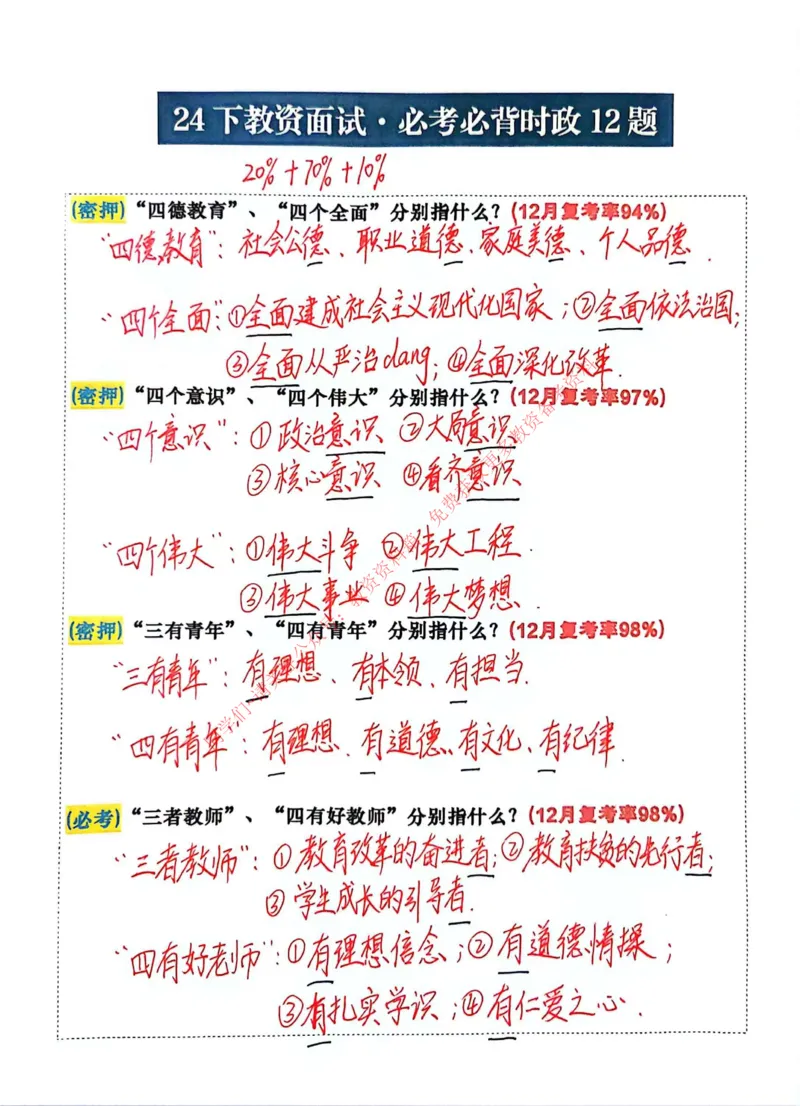 24下教资面试·必考必背时政12题
20%+70%+10%
(密押)“四德教育”、“四个全面”分别指什么?(12月复考率94%)
“四德教育”:社会公德、职业道德、家庭美德、个人品德.
“四个全面”:①全面建成社会主义现代化国家;②全面依法治国;
③全面从严治dang;④全面深化改革.
(密押)“四个意识”、“四个伟大”分别指什么?(12月复考率97%)
“四个意识”:①政治意识 ②大局意识
③核心意识 ④看齐意识
“四个伟大”:①伟大斗争 ②伟大工程.
③伟大事业 ④伟大梦想.
(密押)“三有青年”、“四有青年”分别指什么?(12月复考率98%)
“三有青年”:有理想、有本领、有担当.
“四有青年”:有理想、有道德、有文化、有纪律.
(必考)“三者教师”、“四有好教师”分别指什么?(12月复考率98%)
“三者教师”:①教育改革的奋进者;②教育扶贫的先行者;
③学生成长的引导者.
“四有好老师”:①有理想信念;②有道德情操;
③有扎实学识;④有仁爱之心.